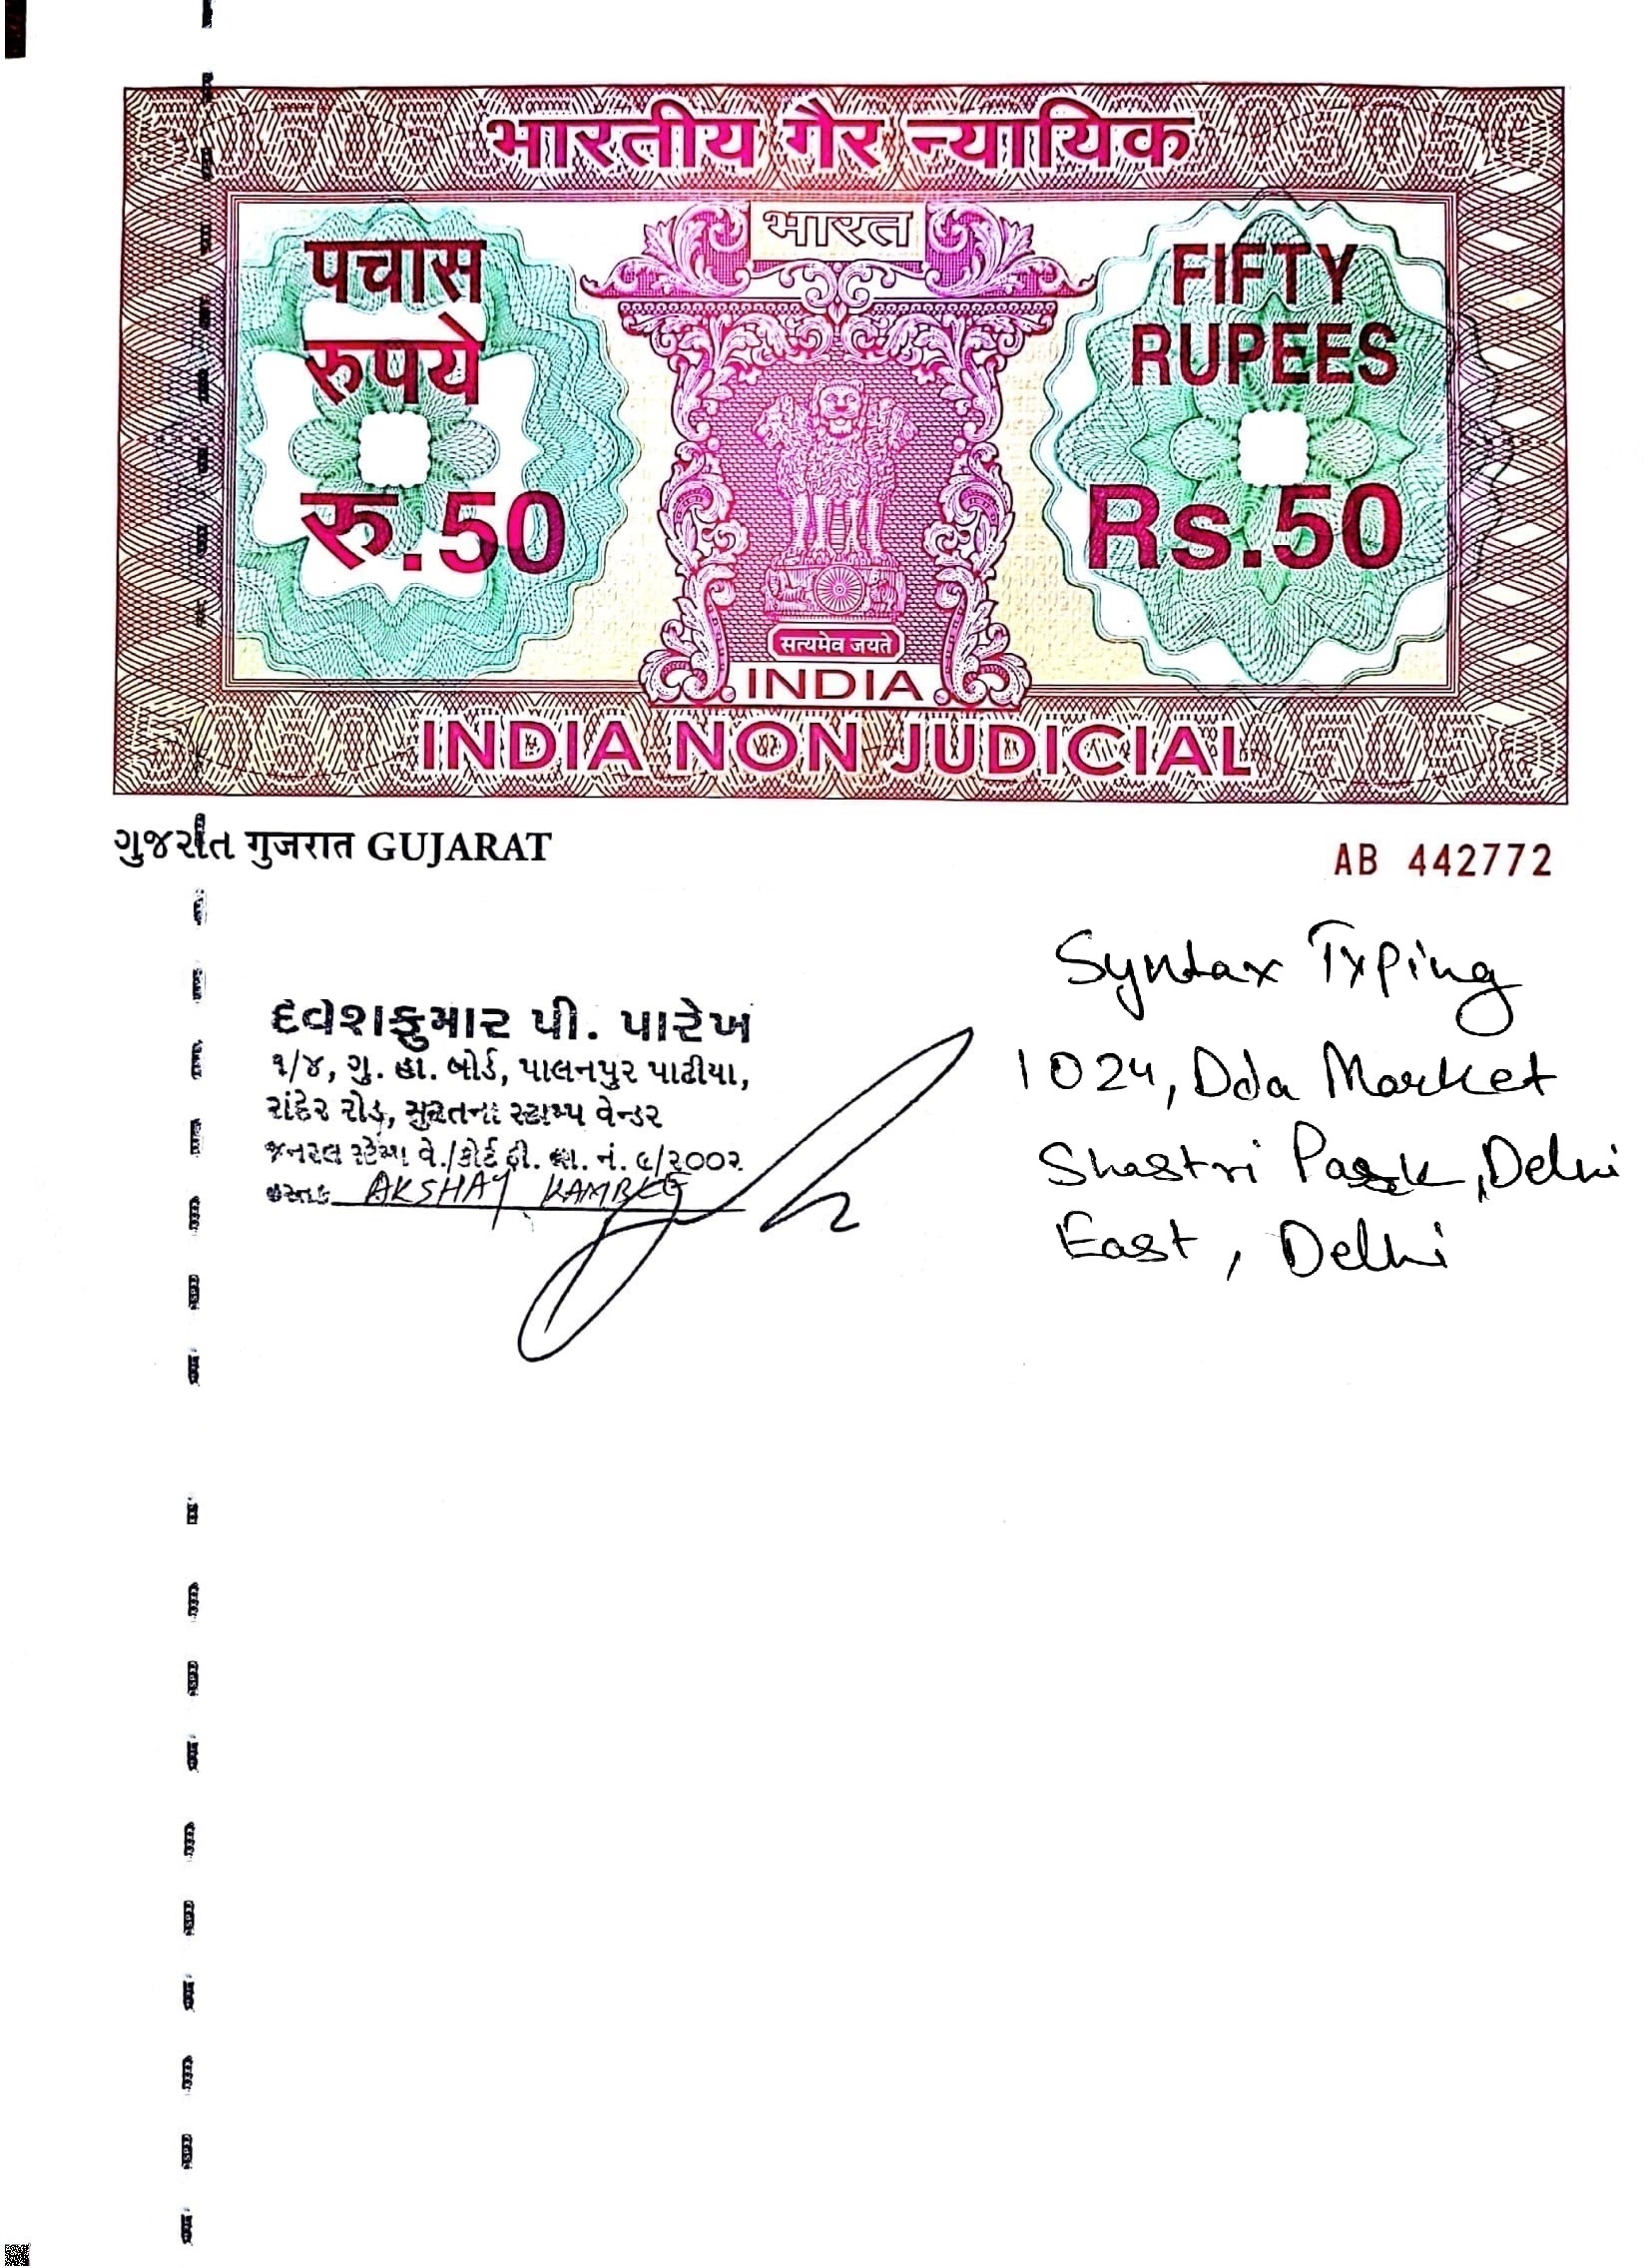 भारतीय गैर न्यायिक
भारत
पचास
रुपये
रु.50
FIFTY
RUPEES
Rs.50
सत्यमेव जयते
INDIA
INDIA NON JUDICIAL
ગુજરાત गुजरात GUJARAT
AB 442772
દેવેશકુમાર પી. પારેખ
૧/૪, ગુ. હા. બોર્ડ, પાલનપુર પાટીયા,
રાંદેર રોડ, સુરતના સ્ટામ્પ વેન્ડર
જનરલ સ્ટેમ્પ વે./કોર્ટ ફી. લા. નં. ૬/૨૦૦૨
AKSHAY
Syntax Typing
1024, Dda Market
Shastri Park, Delhi
East, Delhi